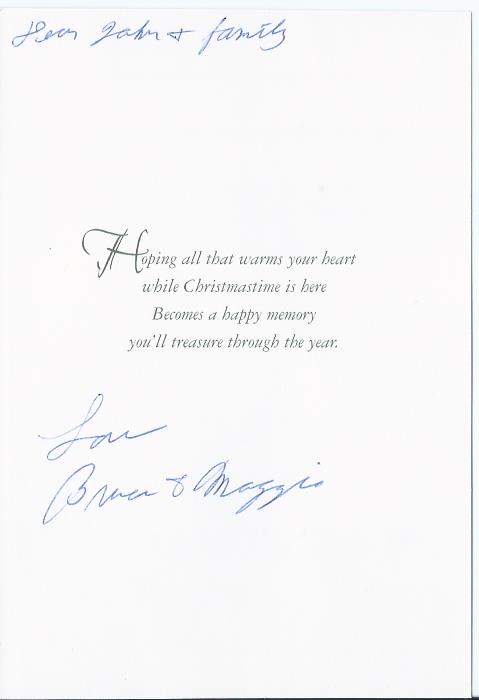 Dear John + family
Hoping all that warms your heart
while Christmastime is here
Becomes a happy memory
you'll treasure through the year.
Love
Bruce & Maggie